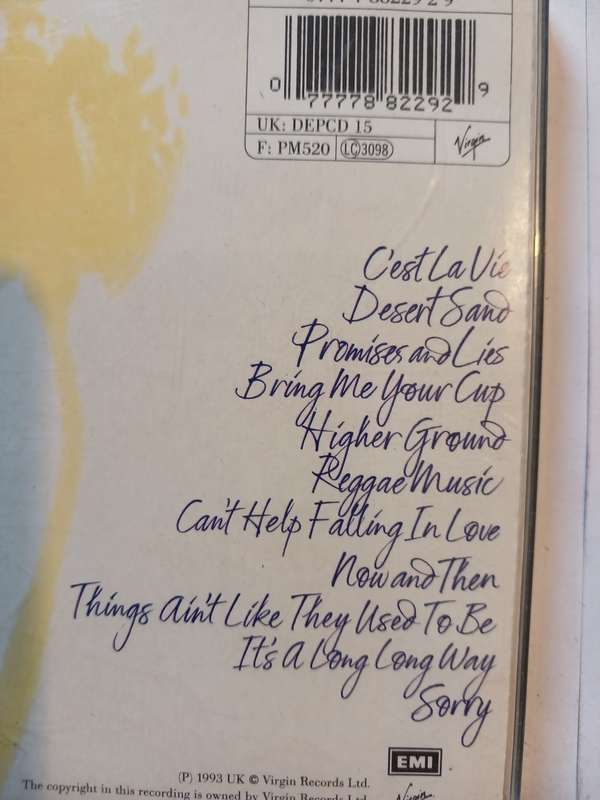 0 77778 82292 9
UK: DEPCD 15
F: PM520 LC 3098 Virgin
C'est La Vie
Desert Sand
Promises and Lies
Bring Me Your Cup
Higher Ground
Reggae Music
Can't Help Falling In Love
Now and Then
Things Ain't Like They Used To Be
It's A Long Long Way
Sorry
EMI
(P) 1993 UK © Virgin Records Ltd.
The copyright in this recording is owned by Virgin Records Ltd
Virgin